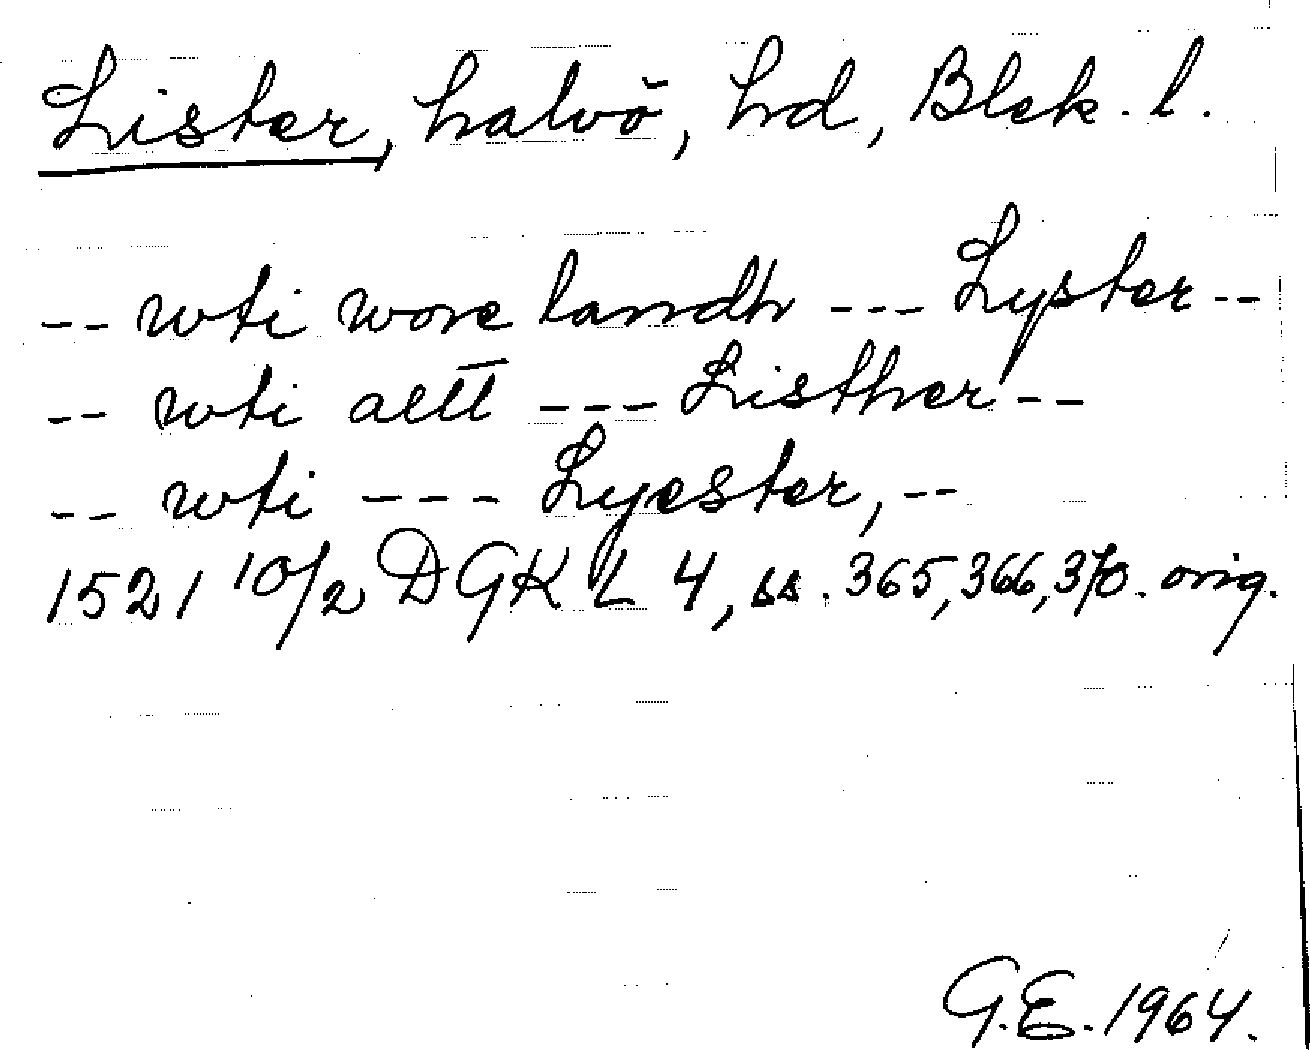 Lister, halvö, hd, Blek. l.
-- wti wore landh --- Lyster --
-- wti aell̅ --- Listher --
-- wti --- Lyester, --
1521 10/2 DGKL 4, ss. 365, 366, 370. orig.
G.E. 1964.